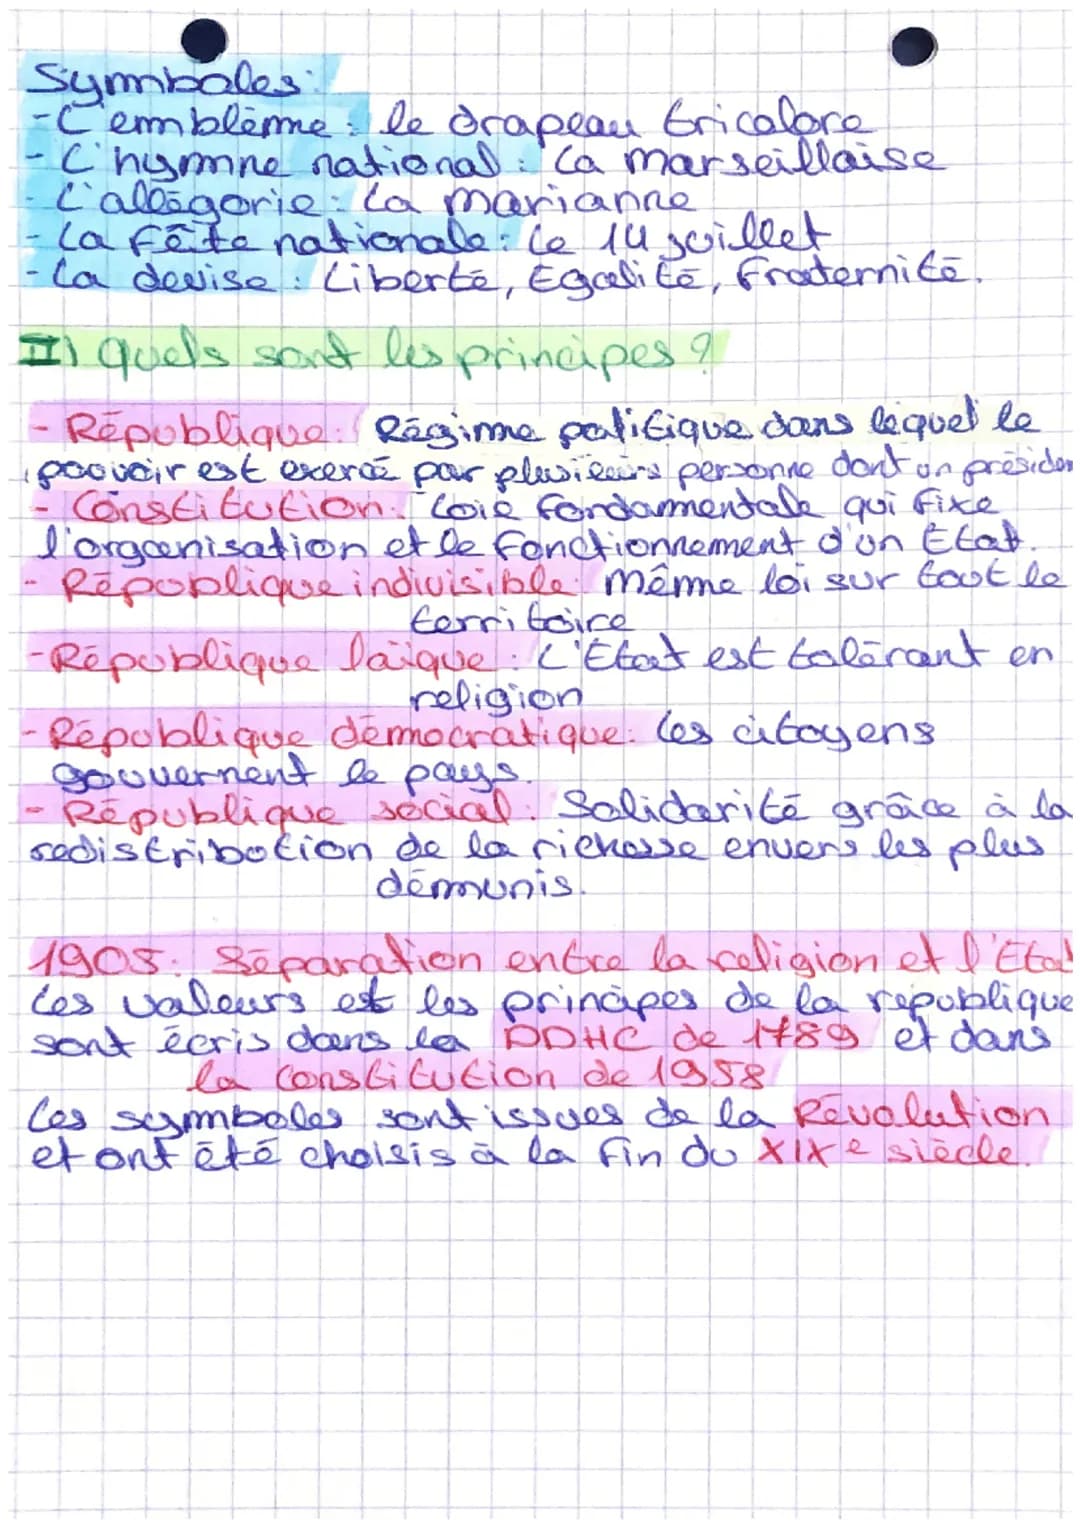 Symboles:
- L'emblème : le drapeau tricolore
- L'hymne national : La marseillaise
- L'allégorie : La marianne
- La fête nationale : le 14 juillet
- La devise : Liberté, Egalité, Fraternité.
II) Quels sont les principes ?
- République : Régime politique dans lequel le
pouvoir est exercé par plusieurs personne dont un présiden
- Constitution : Loie fondamentale qui fixe
l'organisation et le fonctionnement d'un Etat.
- République indivisible : même loi sur tout le
territoire
- République laïque : L'Etat est tolérant en
religion
- République démocratique : Les citoyens
gouvernent le pays.
- République social : Solidarité grâce à la
redistribution de la richesse envers les plus
démunis.
1905 : Séparation entre la religion et l'Etat
Les valeurs est les principes de la republique
sont écris dans la DDHC de 1789 et dans
la constitution de 1958
Les symboles sont issues de la Révolution
et ont été choisis à la fin du XIXe siècle.